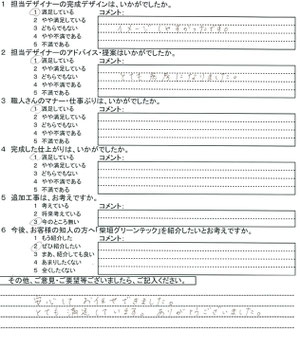 1 担当デザイナーの完成デザインは、いかがでしたか。
1 満足している
コメント:
2 やや満足している
イメージしやすかったです
3 どちらでもない
4 やや不満である
5 不満である
2 担当デザイナーのアドバイス・提案はいかがでしたか。
1 満足している
コメント:
2 やや満足している
とても参考になりました。
3 どちらでもない
4 やや不満である
5 不満である
3 職人さんのマナー・仕事ぶりは、いかがでしたか。
1 満足している
コメント:
2 やや満足している
3 どちらでもない
4 やや不満である
5 不満である
4 完成した仕上がりは、いかがでしたか。
1 満足している
コメント:
2 やや満足している
3 どちらでもない
4 やや不満である
5 不満である
5 追加工事は、お考えですか。
1 考えている
コメント:
2 将来考えている
3 今のところ無い
6 今後、お客様の知人の方へ「柴垣グリーンテック」を紹介したいとお考えですか。
1 もう紹介した
コメント:
2 ぜひ紹介したい
3 まあ、紹介しても良い
4 あまりしたくない
5 全くしたくない
その他、ご意見・ご要望等ございましたら、ご記入ください。
安心してお任せできました。
とても満足しています。ありがとうございました。